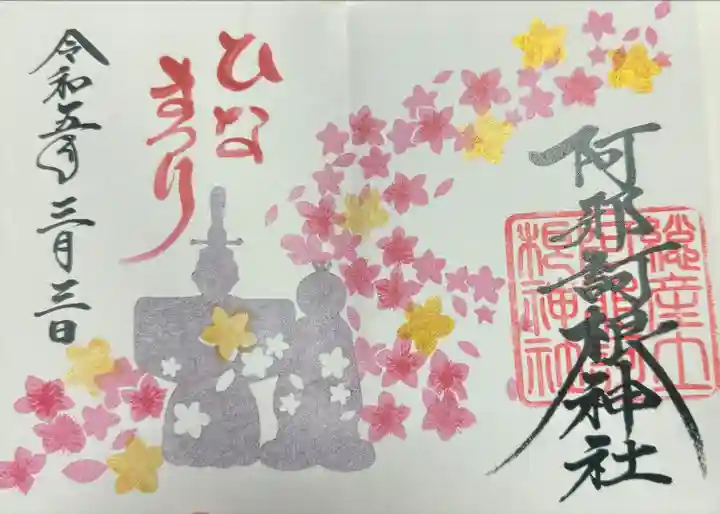 阿邪訶根神社
總産土
根神社
ひな
まつり
令和五年
三月三日